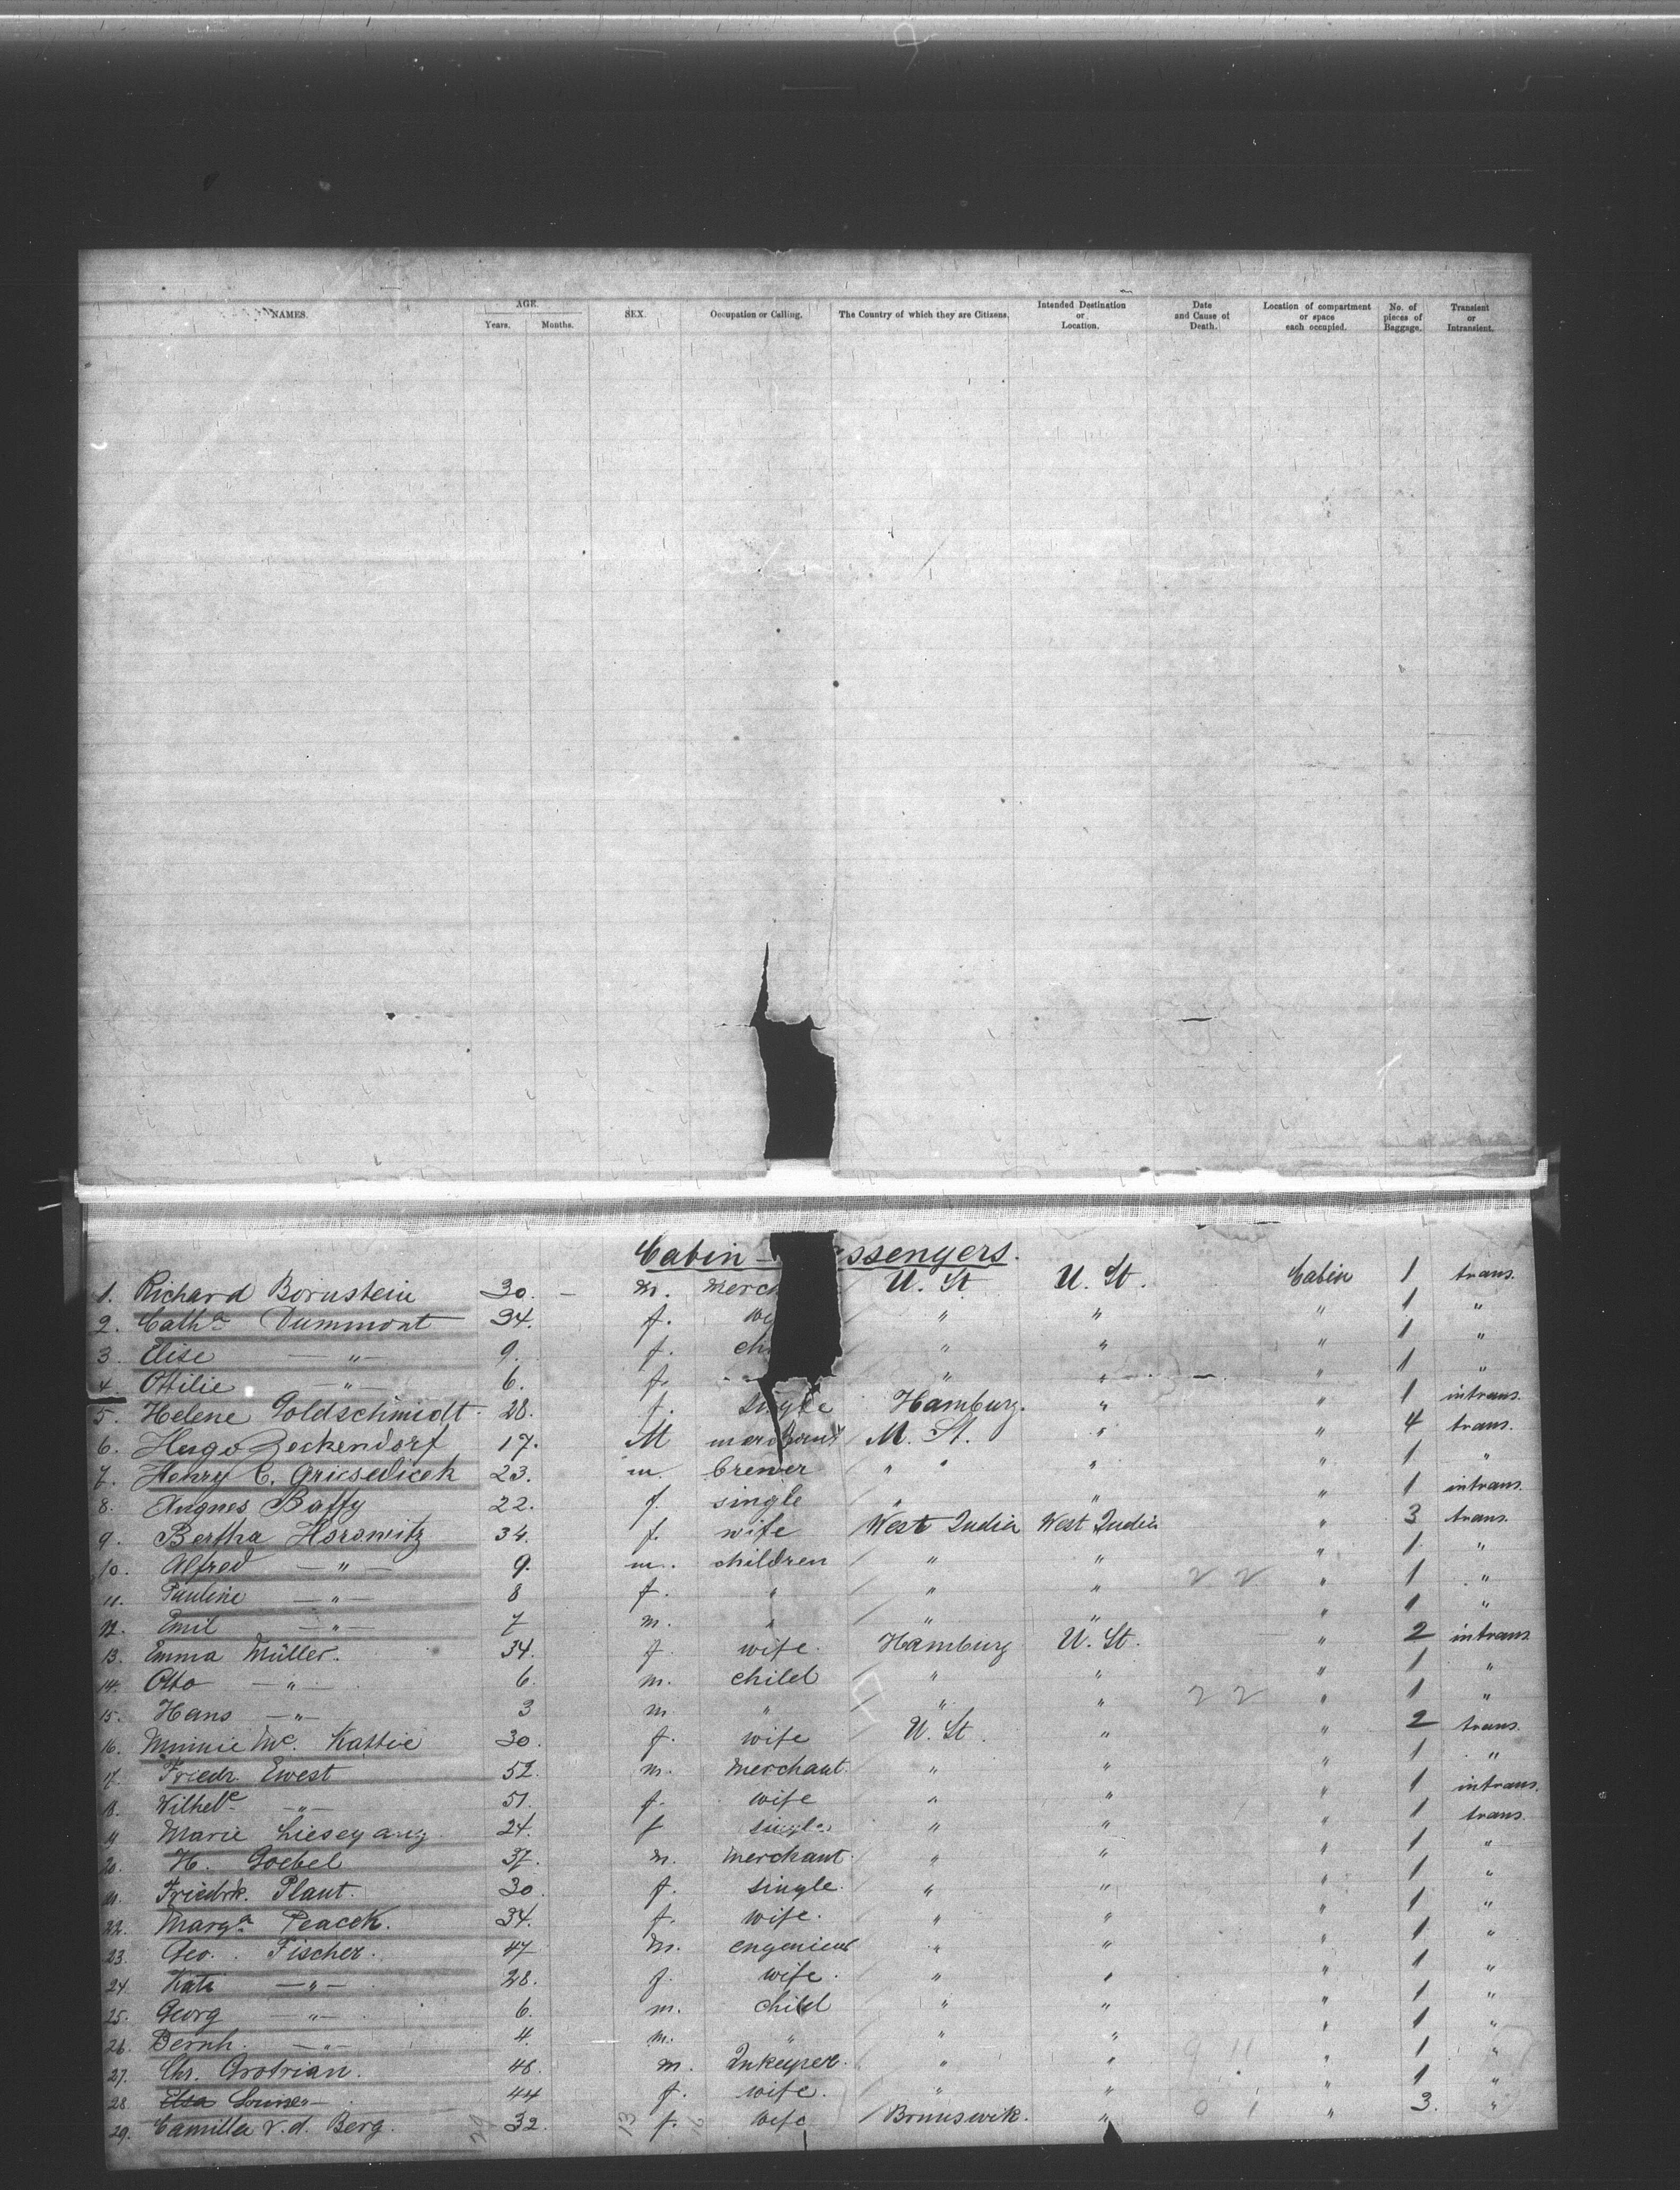 NAMES. AGE. Years. Months. SEX. Occupation or Calling. The Country of which they are Citizens. Intended Destination or Location. Date and Cause of Death. Location of compartment or space each occupied. No. of pieces of Baggage. Transient or Intransient.
Cabin - ssengers.
1. Richard Bornstein 30. — m. merc U. St U. St. Cabin 1 trans.
2. Cath.a Dummont 34. f. " " " 1 "
3. Elise —"— 9. f. ch " " " 1 "
4. Ottilie —"— 6. f. " " " 1 "
5. Helene Goldschmidt 28. f. single Hamburg. " " 1 intrans.
6. Hugo Zeckendorf 17. M merchant U. St. " " 4 trans.
7. Henry C. Griesedieck 23. m. brewer " " " " 1 "
8. Augnes Baffy 22. f. single " " " 1 intrans.
9. Bertha Horowitz 34. f. wife West India West India " 3 trans.
10. Alfred —"— 9. m. children " " " 1 "
11. Pauline —"— 8 f. " " " 2 2 " 1 "
12. Emil —"— 7 m. " " " " 1 "
13. Emma Müller. 34. f. wife. Hamburg U. St. " 2 intrans.
14. Otto —"— 6. m. child " " " 1 "
15. Hans —"— 3 m. " " " 2 2 " 1 "
16. Minnie Mc. Kattie 30. f. wife U. St. " " 2 trans.
17. Friedr. Ewest 52. m. merchant. " " " 1 "
18. Wilhel.e —"— 51. f. wife " " " 1 intrans.
19 Marie Liesegang 24. f single " " " 1 trans.
20. H. Goebel 37. m. merchant. " " " 1 "
21. Friedrk. Plaut. 30. f. single. " " " 1 "
22. Marg.a Peacok. 34. f. wife. " " " 1 "
23. Geo. Fischer. 47 m. engenieur " " " 1 "
24. Kate —"— 28. f. wife. " " " 1 "
25. Georg —"— 6. m. child " " " 1 "
26. Bernh. —"— 4. m. " " " " 1 "
27. Chr. Grotrian. 48. m. Inkeeper. " " 9 11 " 1 "
28. Elsa Louise —"— 44 f. wife. " " " 1 "
29. Camilla v. d. Berg. 29 32. 13 f. 16 wife / Brunswik. " 0 1 " 3. "